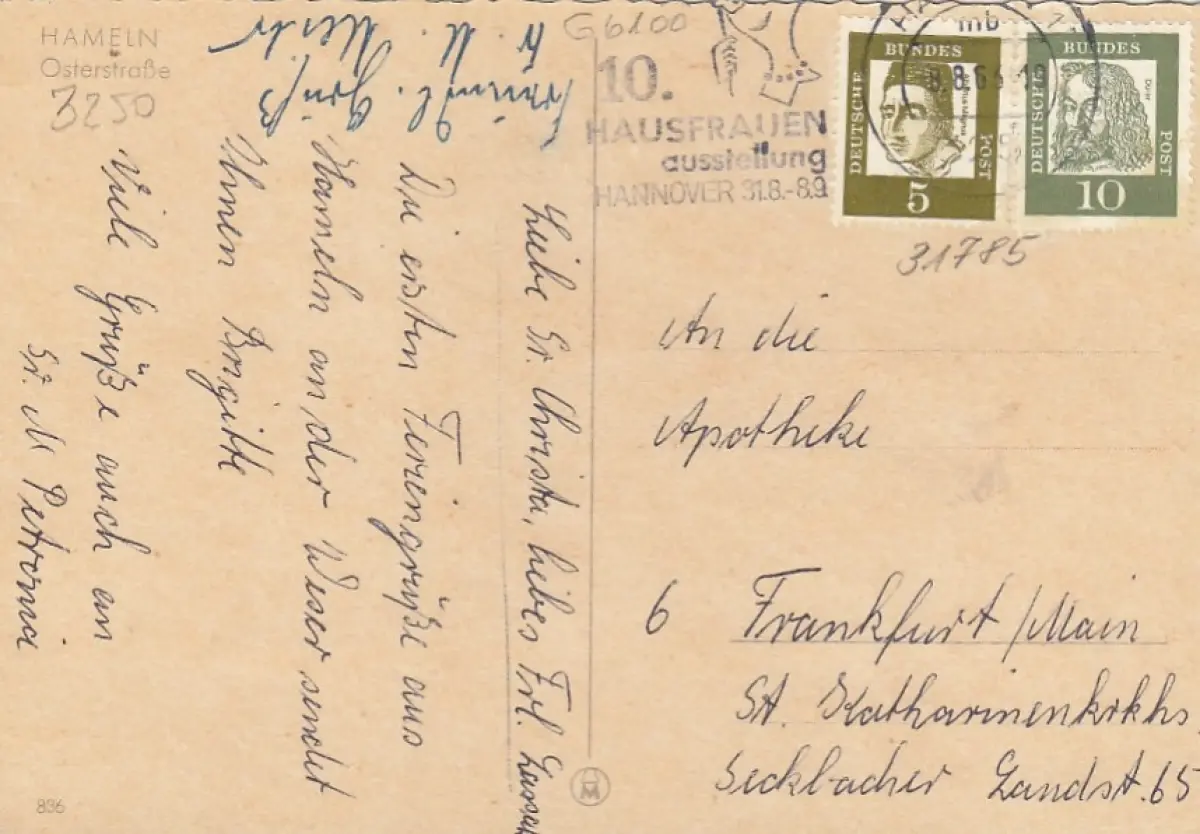 HAMELN
Osterstraße
3250
G6100
10.
HAUSFRAUEN
ausstellung
HANNOVER 31.8.-8.9.
mb
8.8.6
DEUTSCHE BUNDES POST
5
DEUTSCHE BUNDES POST
Dürer
10
31785
Liebe Sr. Christa, liebes Frl.
Die ersten Feriengrüße aus
Hameln an der Weser sendet
Ihnen Brigitte
Viele Grüße auch an
Sr. M Petronia
Grüß
An die
Apotheke
6 Frankfurt/Main
St. Katharinenkrkhs
Seckbacher Landst. 65
836